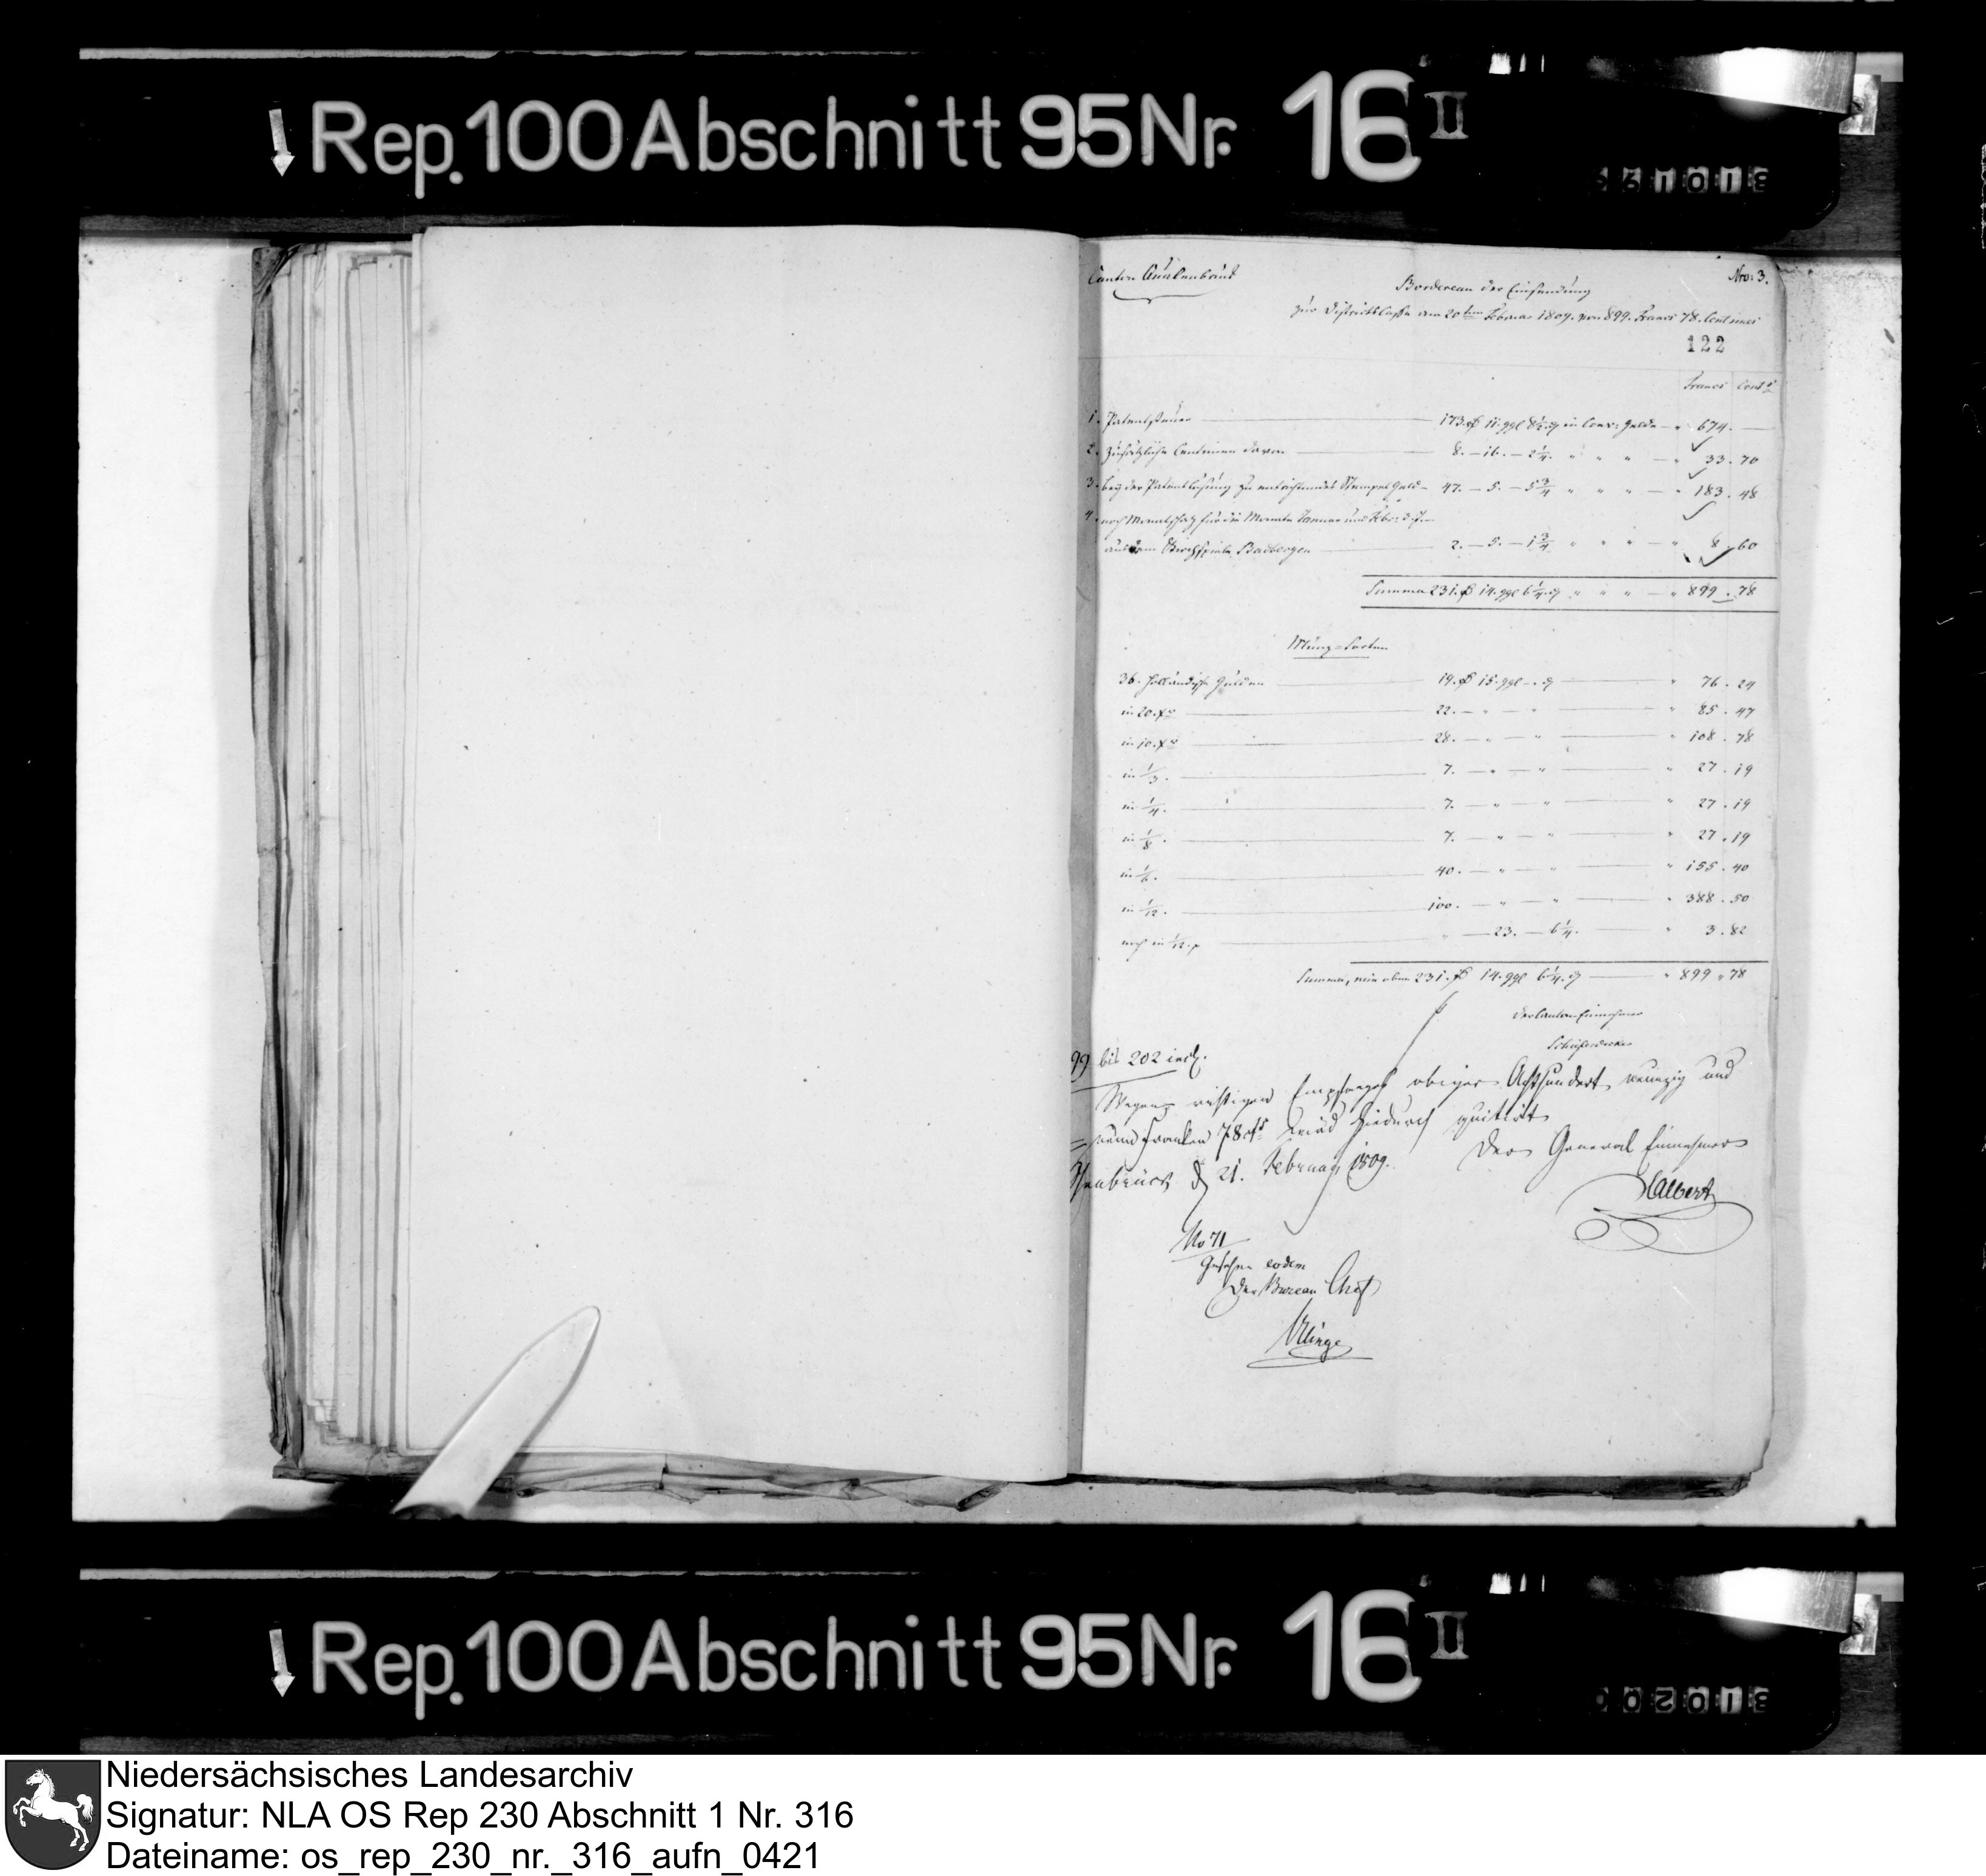 Rep. 100 Abschnitt 95 Nr. 16 II
Canton Quakenbrück
Nro: 3.
Bordereau der Einsendung
zur Districtskasse am 20ten Februar 1809. von 899. Francs 78. Centimes
122
Francs Cents
1. Patentsteuer 173. 11. ggl 8 1/2 in Conv: Gelde 674.
2. Zusätzliche Centimen davon 8. — 16. — 2 1/4. " " " 33. 70
3. bey der Patentlösung zu entrichtendes Stempelgeld 47. — 5. — 5 3/4 " " " 183. 48
4. noch für die Monate Januar und Febr:
aus dem Kirchspiele Badbergen 2. — 5. — 1 3/4 " " " 8. 60
Summa 231. 14. ggl 6 1/4. " " " 899. 78
Münz-Sorten
36. Holländische Gulden 19. 15. ggl 76. 24
in 20. 22. — " — " 85. 47
in 10. 28. — " — " 108. 78
in 1/3. 7. — " — " 27. 19
in 1/4. 7. — " — " 27. 19
in 1/8. 7. — " — " 27. 19
in 1/6. 40. — " — " 155. 40
in 1/12. 100. — " — " 388. 50
noch in 1/12. " — 23. — 6 1/4. 3. 82
Summa, wie oben 231. 14. ggl 6 1/4. 899. 78
Der Canton Einnehmer
99 bis 202 incl.
Wegen richtigen Empfanges obiger Achthundert neunzig und
neun Franken 78 cts wird hiedurch quitirt
Osnabrück d 21. Februar 1809. Der General Einnehmer
Albert
No 71
Gesehen eodem
Der Bureau Chef
Rep. 100 Abschnitt 95 Nr. 16 II
Niedersächsisches Landesarchiv
Signatur: NLA OS Rep 230 Abschnitt 1 Nr. 316
Dateiname: os_rep_230_nr._316_aufn_0421